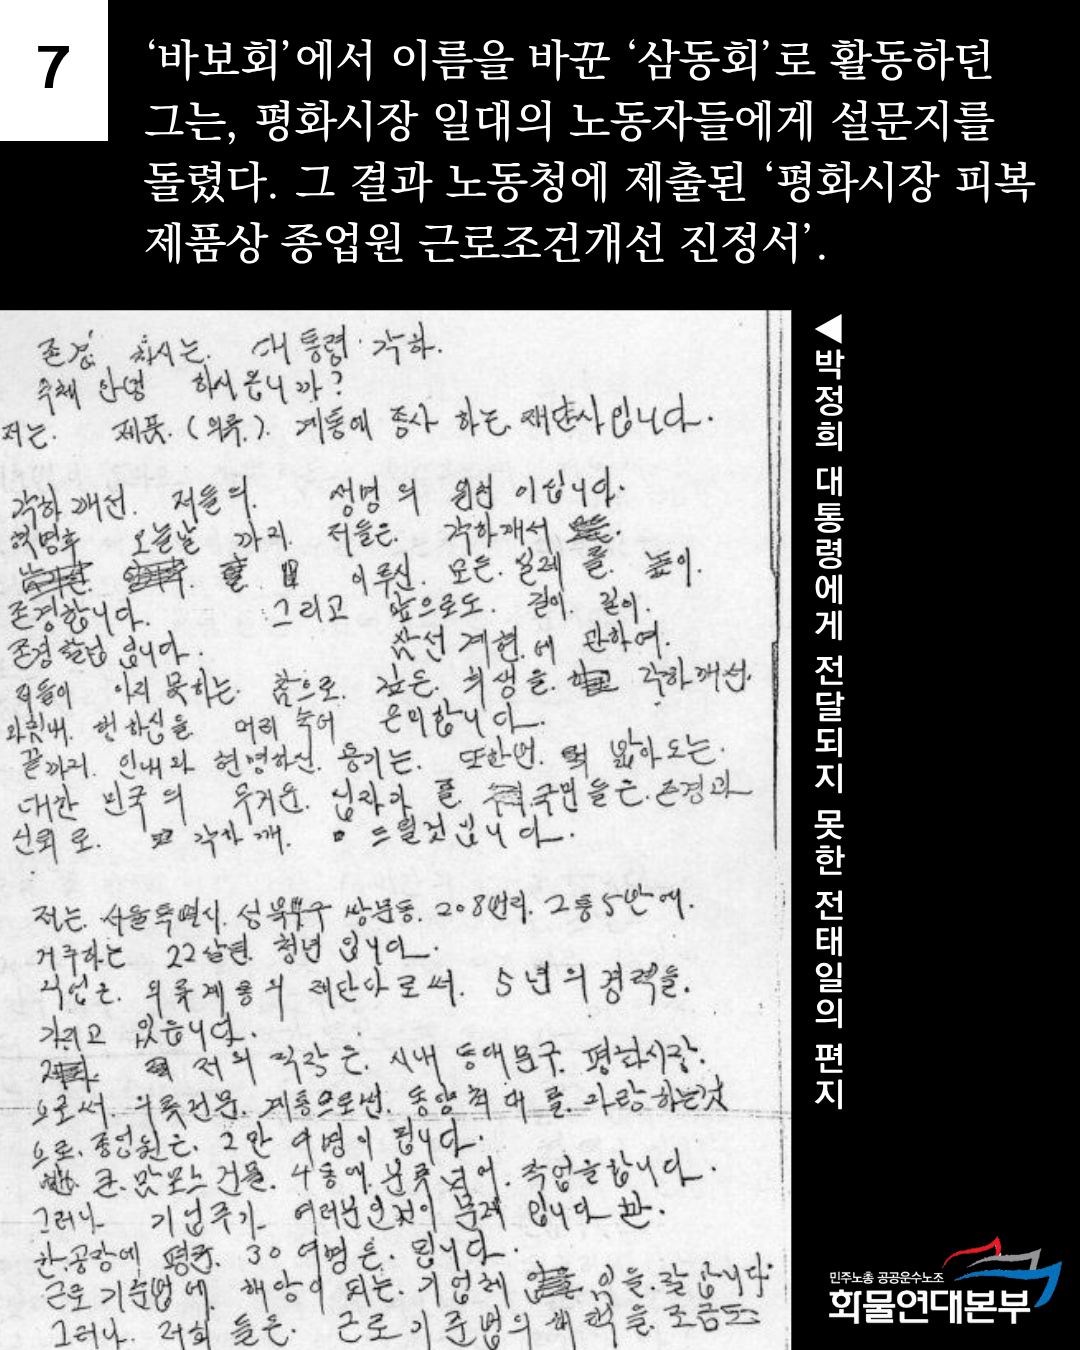 7
‘바보회’에서 이름을 바꾼 ‘삼동회’로 활동하던
그는, 평화시장 일대의 노동자들에게 설문지를
돌렸다. 그 결과 노동청에 제출된 ‘평화시장 피복
제품상 종업원 근로조건개선 진정서’.
존경 하시는. 대통령 각하.
옥체 안녕 하시옵니까?
저는. 제품.(의류.). 계통에 종사 하는. 재단사입니다.
각하께선. 저들의. 생명의 원천 이십니다.
혁명후 오늘날 까지 저들은. 각하께서
이루신. 모든. 실제를. 높이.
존경합니다. 그리고 앞으로도. 길이. 길이.
존경할겁니다. 삼선 개헌.에 관하여.
저들이 아지 못하는. 참으로. 깊은. 희생을. 각하께선.
머리 숙여 은미합니다.
끝까지. 인내와 현명하신. 용기는. 또한번. 밝아오는.
대한 민국의 무거운. 십자가를. 국민들은.존경과
신뢰로. 각하께. 드릴것입니다.
저는. 서울특별시. 성북구 쌍문동. 208번지. 2통5반에.
거주하는 22살된. 청년 입니다.
직업은. 의류계통의 재단사로써. 5년의 경력을.
가지고 있읍니다.
저의 직장은. 시내 동대문구. 평화시장.
으로써. 의류전문. 계통으로썬. 동양 최대를. 자랑하는것
으로. 종업원은. 2만 여명이 됩니다.
큰. 맘모스 건물. 4동에. 분류되어. 작업을합니다.
그러나 기업주가. 여러분인것이 문제 입니다만.
한.공장에 평균. 30여명은. 됩니다.
근로기준법에. 해당이 되는. 기업체임을.잘압니다.
그러나. 저희들은. 근로기준법의 혜택을. 조금도
◀박정희 대통령에게 전달되지 못한 전태일의 편지
민주노총 공공운수노조
화물연대본부